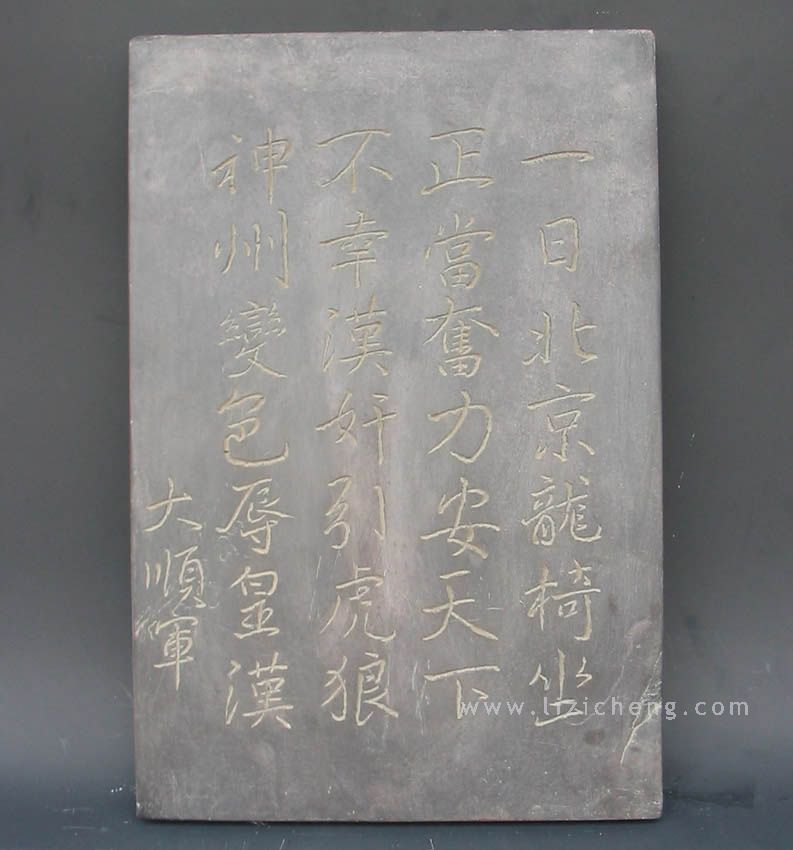 一日北京龍椅坐
正當奮力安天下
不幸漢奸引虎狼
神州變色辱皇漢
大順軍
www.lizicheng.com